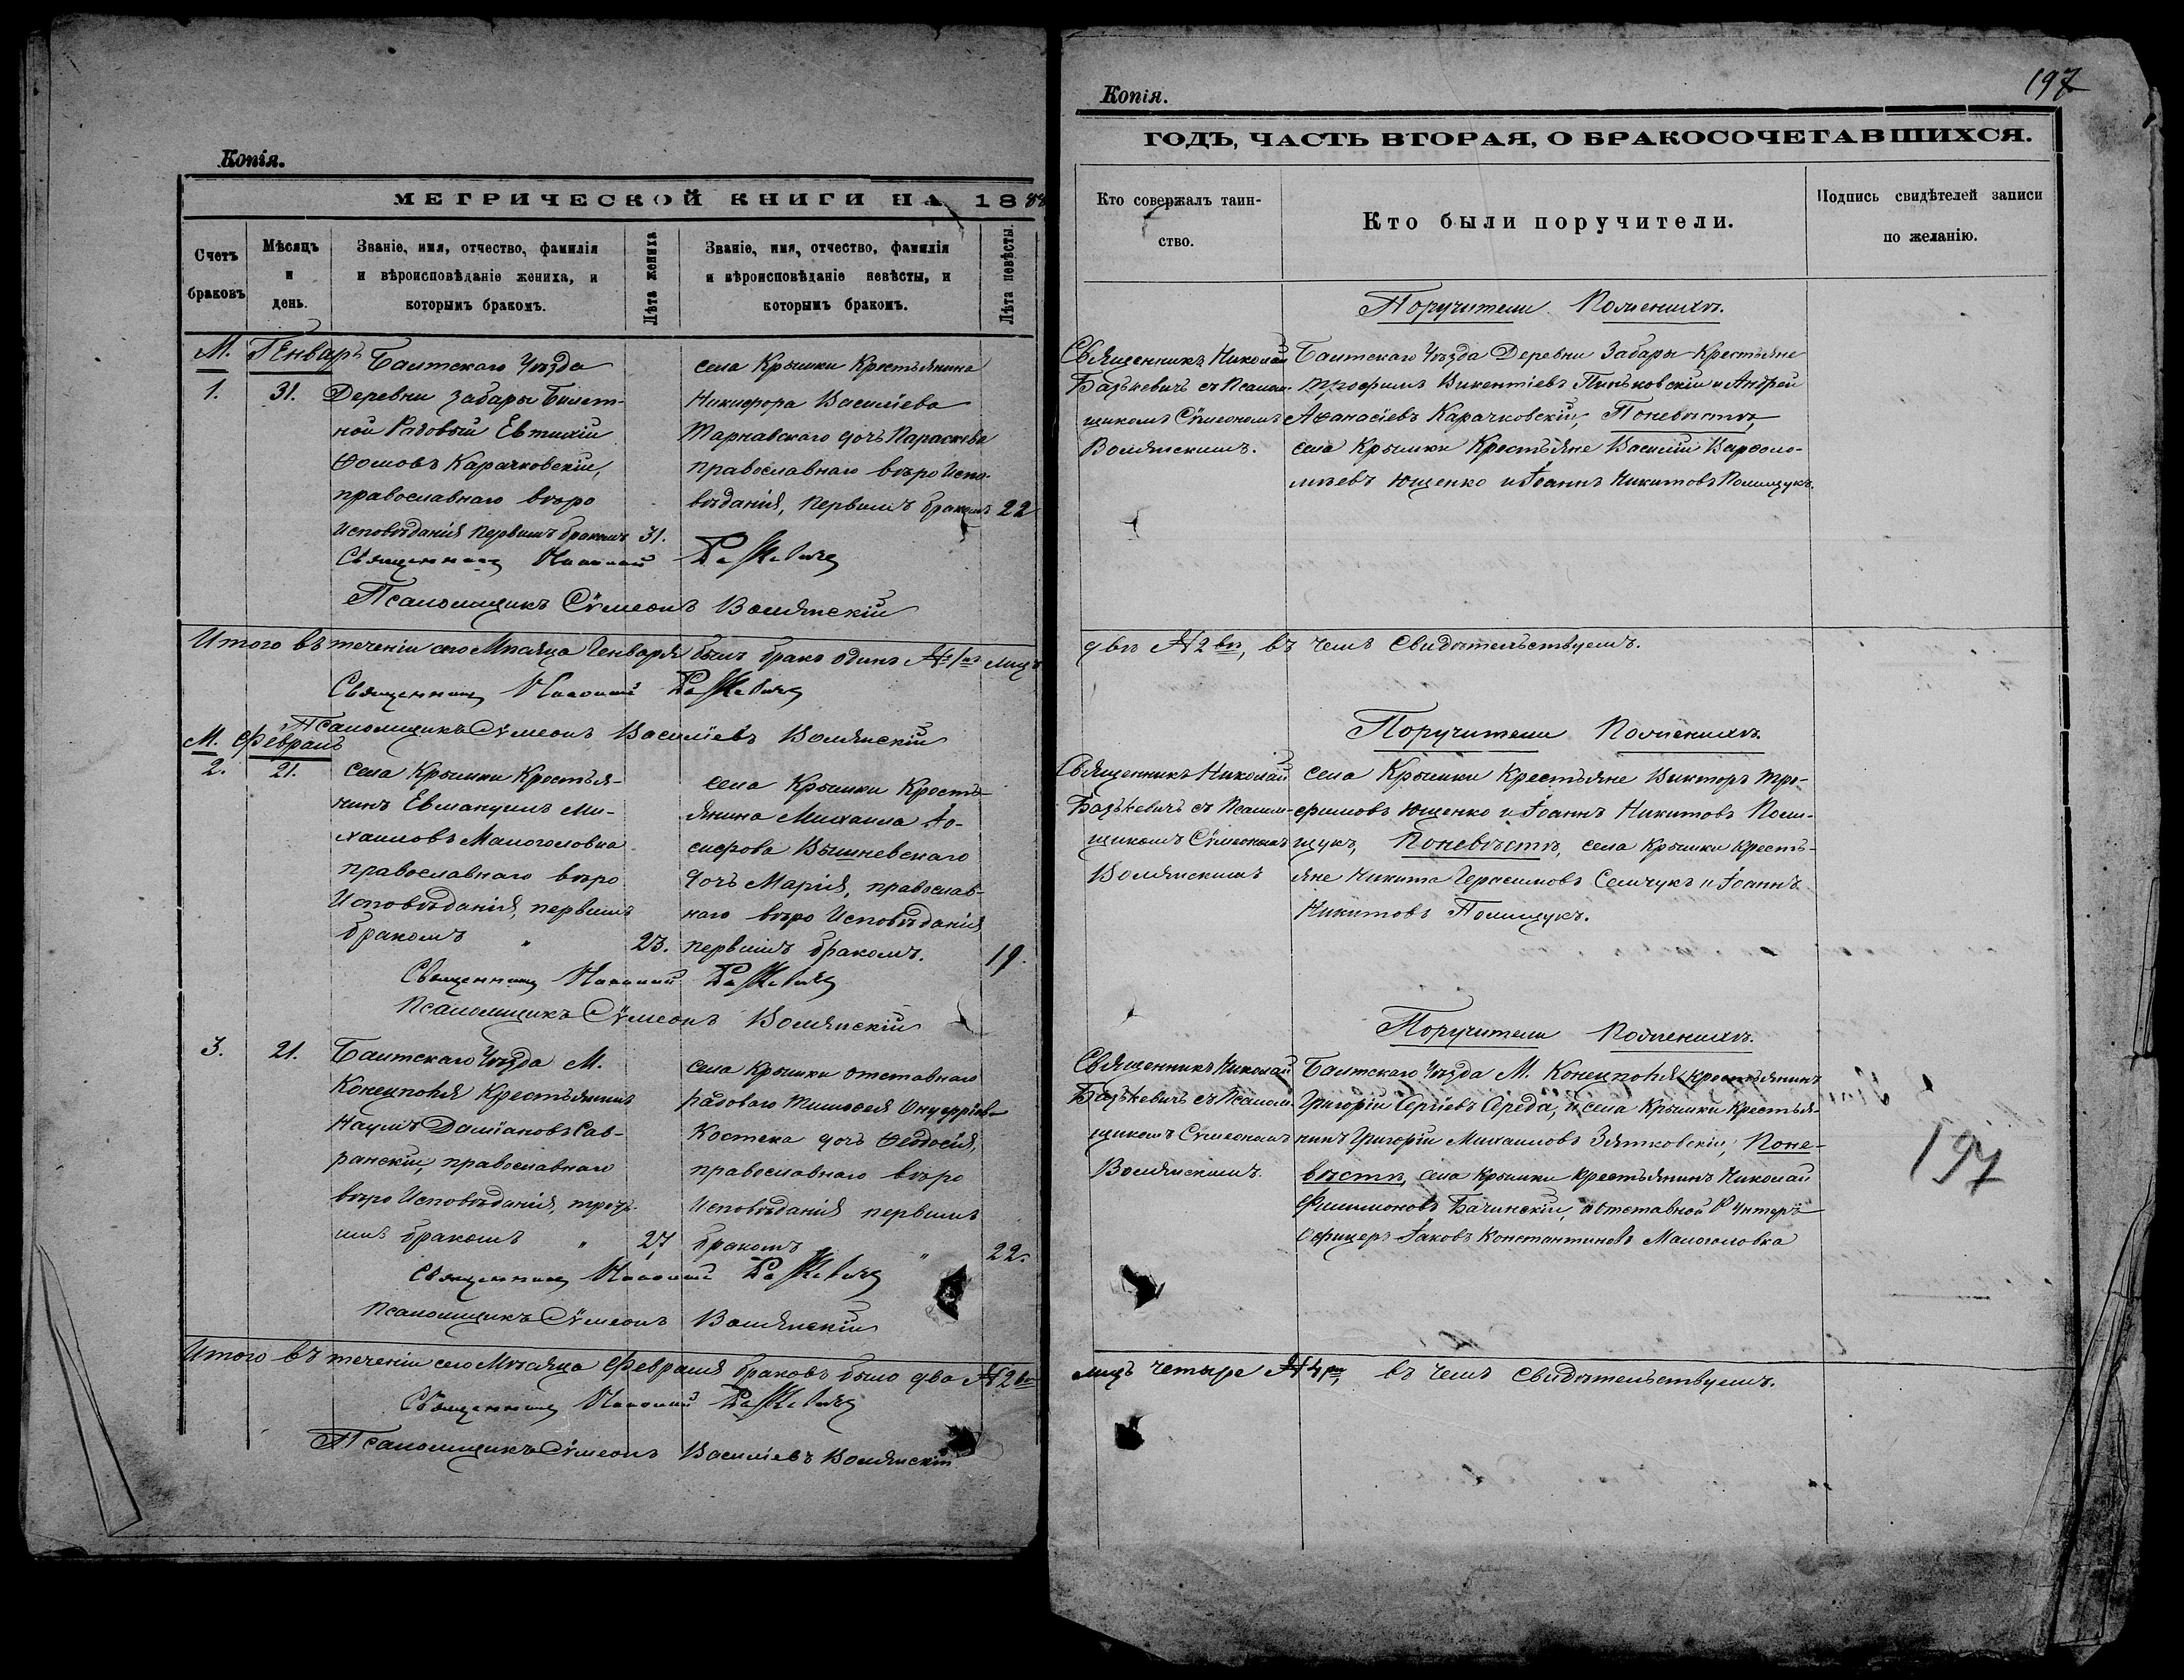 Копія.
МЕТРИЧЕСКОЙ КНИГИ НА 1888
Счетъ браковъ
Мѣсяцъ и день.
Званіе, имя, отчество, фамилія и вѣроисповѣданіе жениха, и которымъ бракомъ.
Лѣта жениха
Званіе, имя, отчество, фамилія и вѣроисповѣданіе невѣсты, и которымъ бракомъ.
Лѣта невѣсты.
М. Генварь
1. 31.
Балтскаго Уѣзда
Деревни Забары Билет-
ной Рядовый Евтихій
Ѳомовъ Карачковскій,
православнаго вѣро
Исповѣданія первымъ бракомъ 31.
села Крымки Крестьянина
Никифора Василіева
Тарнавскаго дочь Параскева
православнаго вѣро Испо-
вѣданія, первымъ бракомъ 22
Священникъ Николай Базькевичъ
Псаломщикъ Сѵмеонъ Волянскій
Итого въ теченіи сего Мѣсяца Генваря былъ бракъ одинъ № 1нъ лицъ
Священникъ Николай Базькевичъ
Псаломщикъ Сѵмеонъ Василіевъ Волянскій
М. Февраль
2. 21.
села Крымки Крестья-
нинъ Евмануилъ Ми-
хаиловъ Малоголовка
православнаго вѣро
Исповѣданія, первымъ
бракомъ " 23.
села Крымки Кресть-
янина Михаила Іо-
сифова Вышневскаго
дочь Марія, православ-
наго вѣро Исповѣданія
первымъ бракомъ. 19.
Священникъ Николай Базькевичъ
Псаломщикъ Сѵмеонъ Волянскій
3. 21.
Балтскаго Уѣзда М.
Конецполя Крестьянинъ
Наумъ Даміановъ Сав-
ранскій, православнаго
вѣро Исповѣданія, треть-
имъ бракомъ " 27
села Крымки отставнаго
рядоваго Тимофея Онуфріева
Костека дочь Ѳеодосія,
православнаго вѣро
Исповѣданія первымъ
бракомъ " 22.
Священникъ Николай Базькевичъ
Псаломщикъ Сѵмеонъ Волянскій
Итого въ теченіи сего Мѣсяца Февраля браковъ было два № 2ва
Священникъ Николай Базькевичъ
Псаломщикъ Сѵмеонъ Василіевъ Волянскій
197
Копія.
ГОДЪ, ЧАСТЬ ВТОРАЯ, О БРАКОСОЧЕТАВШИХСЯ.
Кто совершалъ таин-
ство.
Кто были поручители.
Подпись свидѣтелей записи
по желанію.
Священникъ Николай
Базькевичъ съ Псалом-
щикомъ Сѵмеономъ
Волянскимъ.
Поручители Поженихѣ.
Балтскаго Уѣзда Деревни Забары Крестьяне
Трофимъ Викентіевъ Пиньковскій и Андрей
Аѳанасіевъ Карачковскій, Поневѣстѣ,
села Крымки Крестьяне Василій Варѳоло-
мѣевъ Ющенко и Іоаннъ Никитовъ Полищукъ.
двѣ № 2вѣ, въ чемъ Свидѣтельствуемъ.
Священникъ Николай
Базькевичъ съ Псалом-
щикомъ Сѵмеономъ
Волянскимъ
Поручители Поженихѣ.
села Крымки Крестьяне Викторъ Тро-
фимовъ Ющенко и Іоаннъ Никитовъ Поли-
щукъ, Поневѣстѣ, села Крымки Кресть-
яне Никита Герасимовъ Семчукъ и Іоаннъ
Никитовъ Полищукъ.
Священникъ Николай
Базькевичъ съ Псалом-
щикомъ Сѵмеономъ
Волянскимъ.
Поручители Поженихѣ.
Балтскаго Уѣзда М. Конецполя Крестьянинъ
Григорій Сергіевъ Середа, и села Крымки Крестья-
нинъ Григорій Михаиловъ Зятковскій, Поне-
вѣстѣ, села Крымки Крестьянинъ Николай
Филимоновъ Бачинскій, и отставной Унтеръ
Офицеръ Іаковъ Константиновъ Малоголовка
197
лицъ четыре № 4ре, въ чемъ Свидѣтельствуемъ.